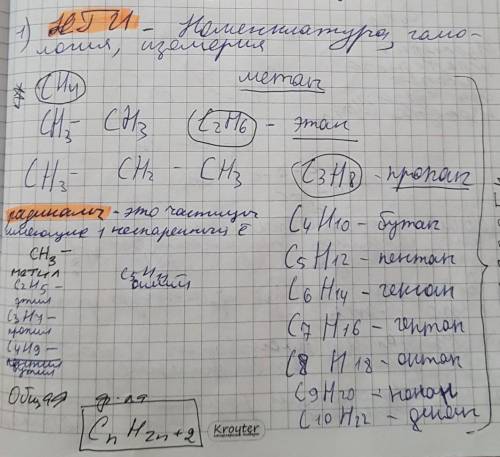 1) НГИ - Номенклатура, гомо-
логия, изомерия
CH4 метан
CH3 - CH3 C2H6 - этан
CH3 - CH2 - CH3 C3H8 - пропан
радикалы - это частицы
имеющие 1 неспаренный ē
CH3 -
метил
C2H5 -
этил
C3H7 -
пропил
C4H9 -
бутил
C5H11
C4H10 - бутан
C5H12 - пентан
C6H14 - гексан
C7H16 - гептан
C8H18 - октан
C9H20 - нонан
C10H22 - декан
Общая ф-ла
CnH2n+2
Kroyter